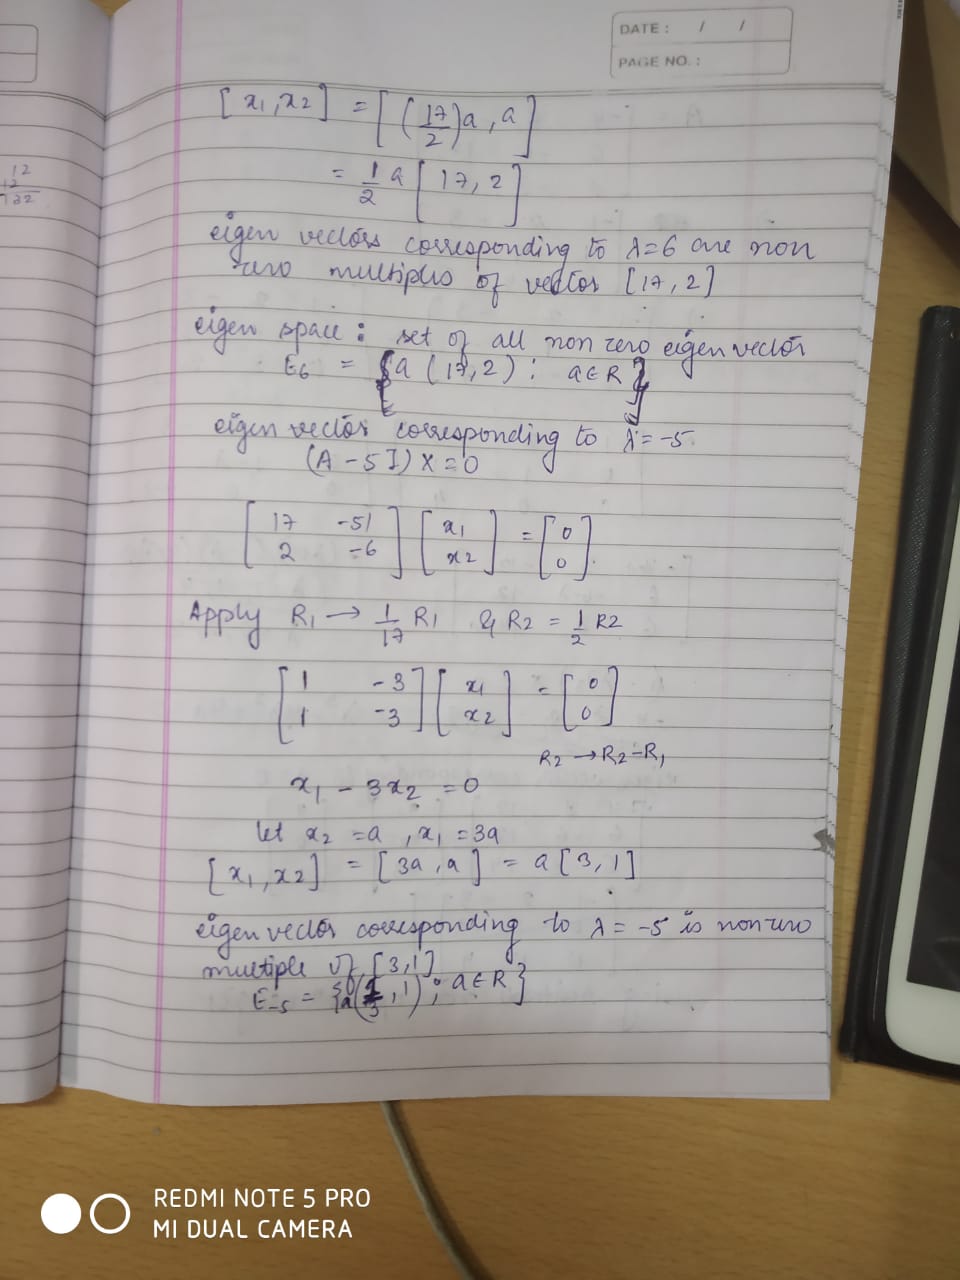 DATE : / /
PAGE NO. :
12
12
132
[x1, x2] = [(17/2)a, a]
= 1/2 a [17, 2]
eigen vectors corresponding to λ=6 are non
zero multiples of vector [17, 2]
eigen space : set of all non zero eigen vector
E6 = {a (17, 2) : a∈R}
eigen vector corresponding to λ = -5.
(A - 5I) X = 0
[17 -51] [x1] = [0]
[2 -6] [x2] [0]
Apply R1 → 1/17 R1 & R2 = 1/2 R2
[1 -3] [x1] = [0]
[1 -3] [x2] [0]
R2 → R2 - R1
x1 - 3x2 = 0
let x2 = a , x1 = 3a
[x1, x2] = [3a, a] = a [3, 1]
eigen vector corresponding to λ = -5 is non zero
multiple of [3, 1]
E-5 = {a(3, 1) : a∈R}
REDMI NOTE 5 PRO
MI DUAL CAMERA